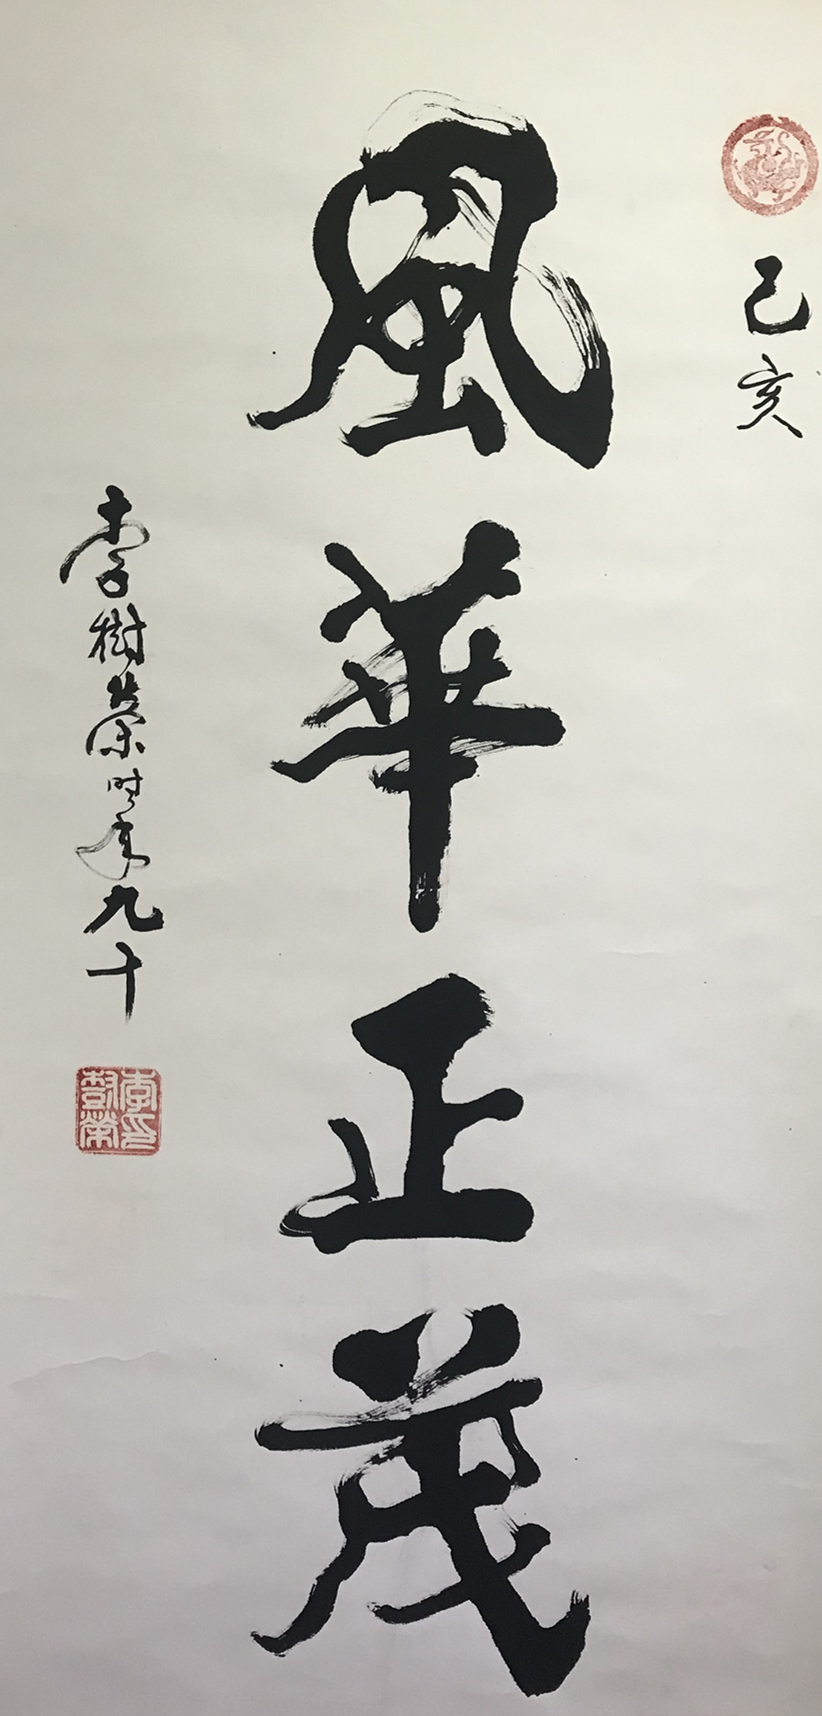 己亥
風華正茂
李樹榮时年九十
李樹榮印